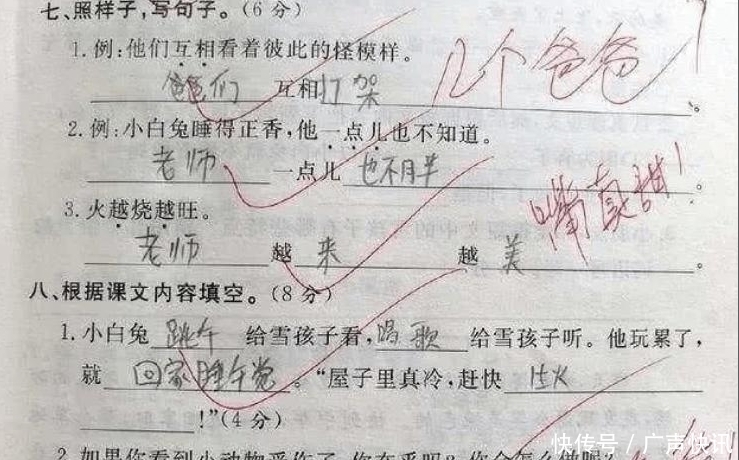 七、照样子,写句子。(6分)
1.例:他们互相看着彼此的怪模样。
爸爸们 互相打架。
几个爸爸?
2.例:小白兔睡得正香,他一点儿也不知道。
老师 一点儿 也不月半。
嘴真甜!
3.火越烧越旺。
老师 越 来 越 美。
八、根据课文内容填空。(8分)
1.小白兔 跳午 给雪孩子看,唱歌 给雪孩子听。他玩累了,
就 回家睡午觉。“屋子里真冷,赶快
!”(4分)
快传号/广声快讯